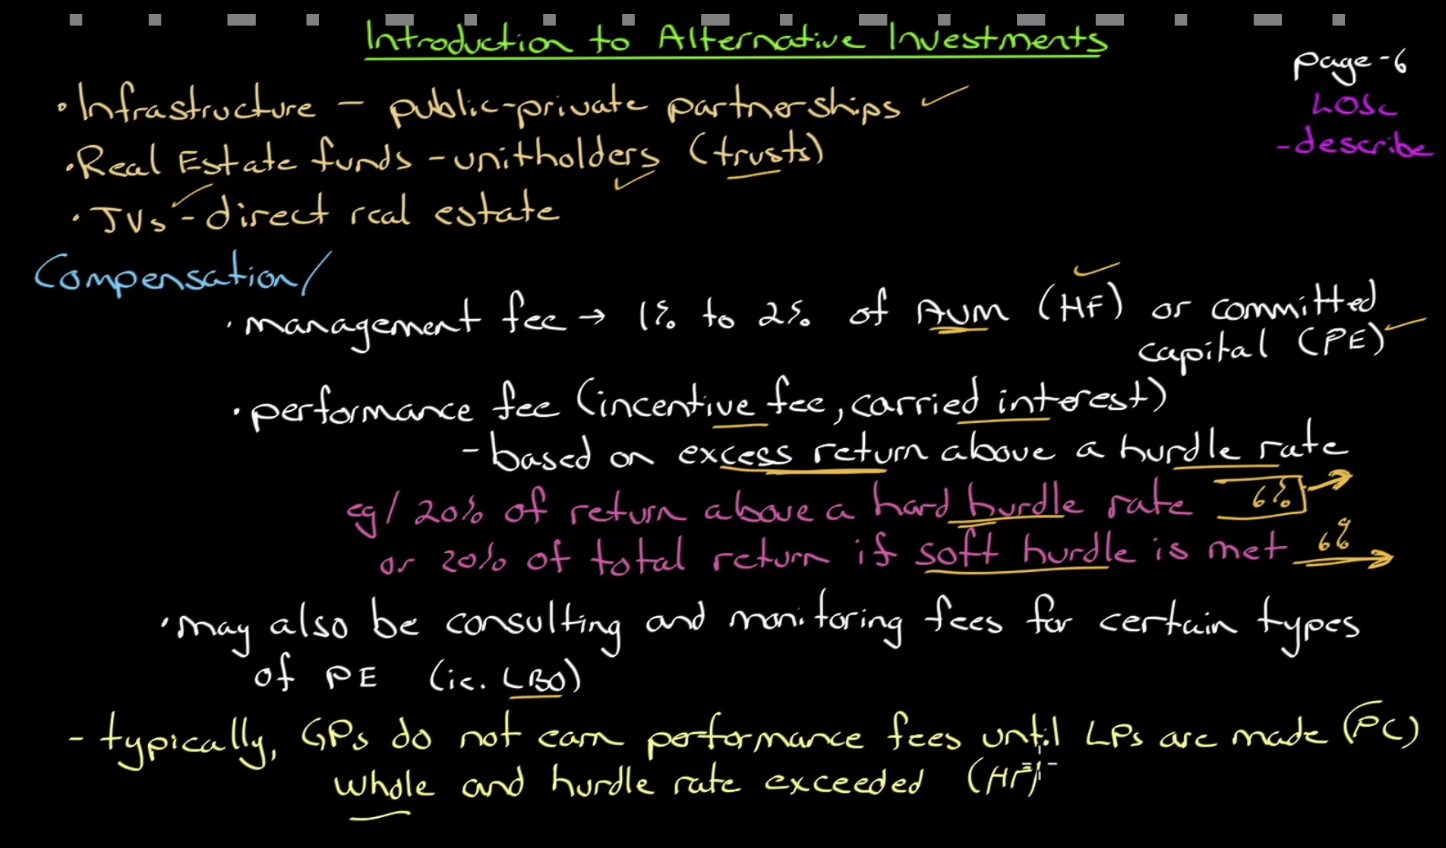 Introduction to Alternative Investments
page-6
LOSc
-describe
• Infrastructure – public-private partnerships ✓
• Real Estate funds – unitholders (trusts)
• JVs – direct real estate
Compensation/
• management fee → 1% to 2% of AUM (HF) or committed
capital (PE)
• performance fee (incentive fee, carried interest)
- based on excess return above a hurdle rate
eg/ 20% of return above a hard hurdle rate 6%
or 20% of total return if soft hurdle is met 6%
• may also be consulting and monitoring fees for certain types
of PE (ie. LBO)
- typically, GPs do not earn performance fees until LPs are made (PC)
whole and hurdle rate exceeded (HF)